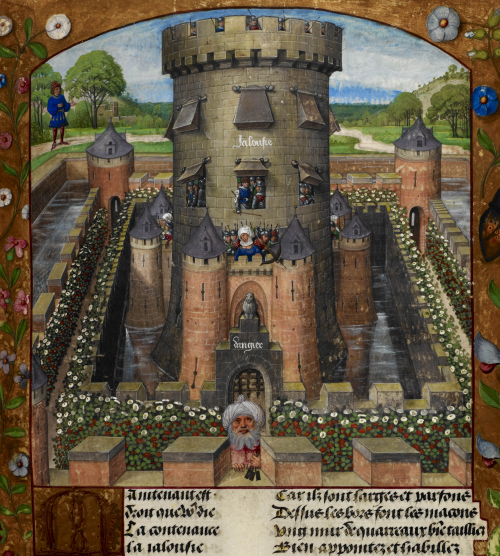 Jalousie
dangier
Maintenant est
Droit que vo die
La contenance
La ialousie
Car ilz sont larges et parfons
Dessus les bors sont les macons
Ung mur de quarreaux bie taillie
Bien appointiez et habillez